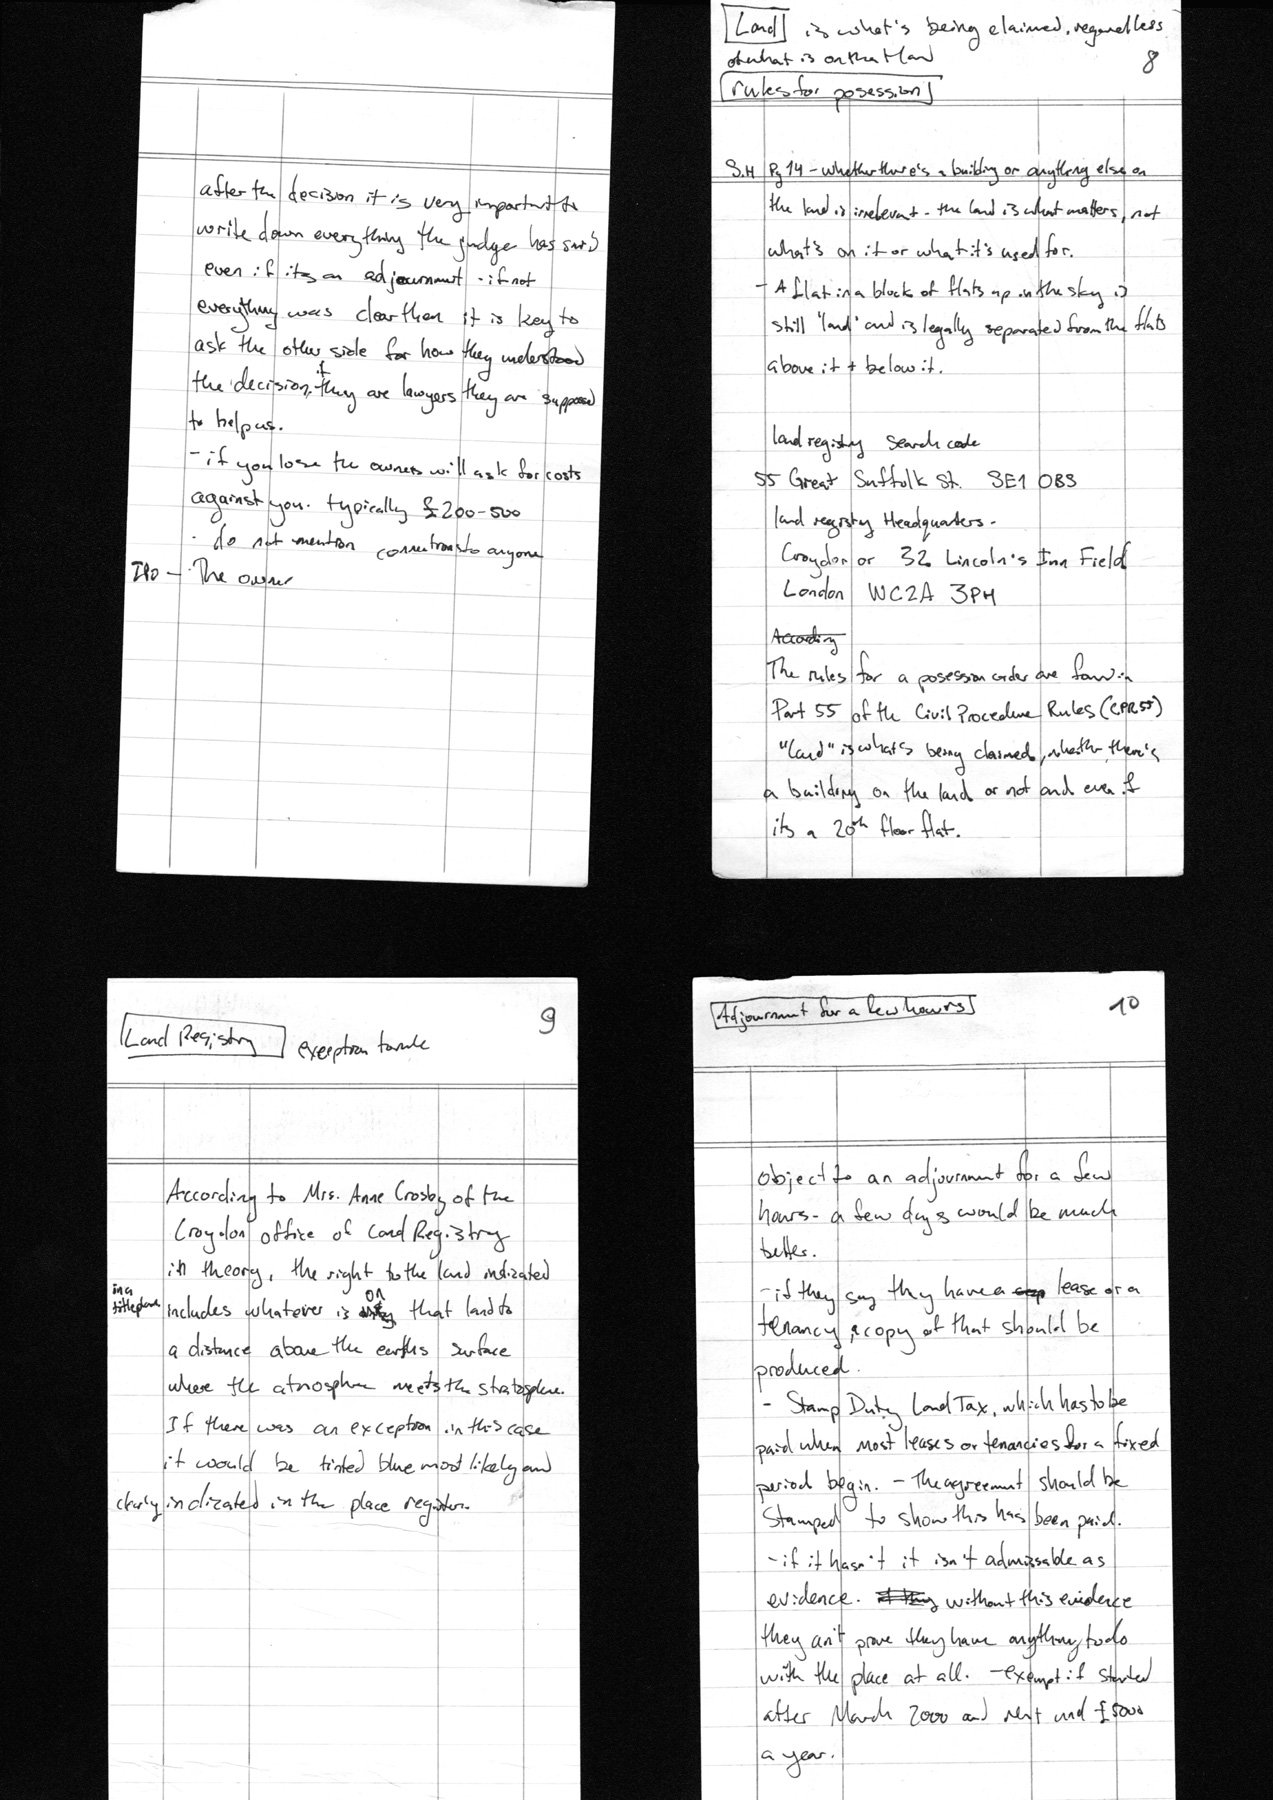 after the decision it is very important to
write down everything the judge has said
even if its an adjournment - if not
everything was clear then it is key to
ask the other side for how they understood
the decision, if they are lawyers they are supposed
to help us.
- if you lose the owners will ask for costs
against you. typically £200-500
- do not mention connections to anyone
IPO - The owner
Land is what's being claimed, regardless
of what is on that land
8
rules for posession
S.H Pg 14 - whether there's a building or anything else on
the land is irrelevant - the land is what matters, not
what's on it or what it's used for.
- A flat in a block of flats up in the sky is
still 'land' and is legally separated from the flats
above it + below it.
land registry search code
55 Great Suffolk St. SE1 0BS
land registry Headquarters -
Croydon or 32 Lincoln's Inn Field
London WC2A 3PH
According
The rules for a posession order are found in
Part 55 of the Civil Procedure Rules (CPR 55)
"land" is what's being claimed, whether there's
a building on the land or not and even if
its a 20th floor flat.
9
Land Registry exception to rule
According to Mrs. Anne Crosby of the
Croydon office of Land Registry
in theory, the right to the land indicated
in a
title plan includes whatever is on that land to
a distance above the earths surface
where the atmosphere meets the stratosphere.
If there was an exception in this case
it would be tinted blue most likely and
clearly indicated in the place register.
Adjournment for a few hours
10
object to an adjournment for a few
hours - a few days would be much
better.
- if they say they have a lease or a
tenancy, a copy of that should be
produced.
- Stamp Duty Land Tax, which has to be
paid when most leases or tenancies for a fixed
period begin. - The agreement should be
Stamped to show this has been paid.
- if it hasn't it isn't admissable as
evidence. without this evidence
they can't prove they have anything to do
with the place at all. - exempt if started
after March 2000 and rent und £5000
a year.